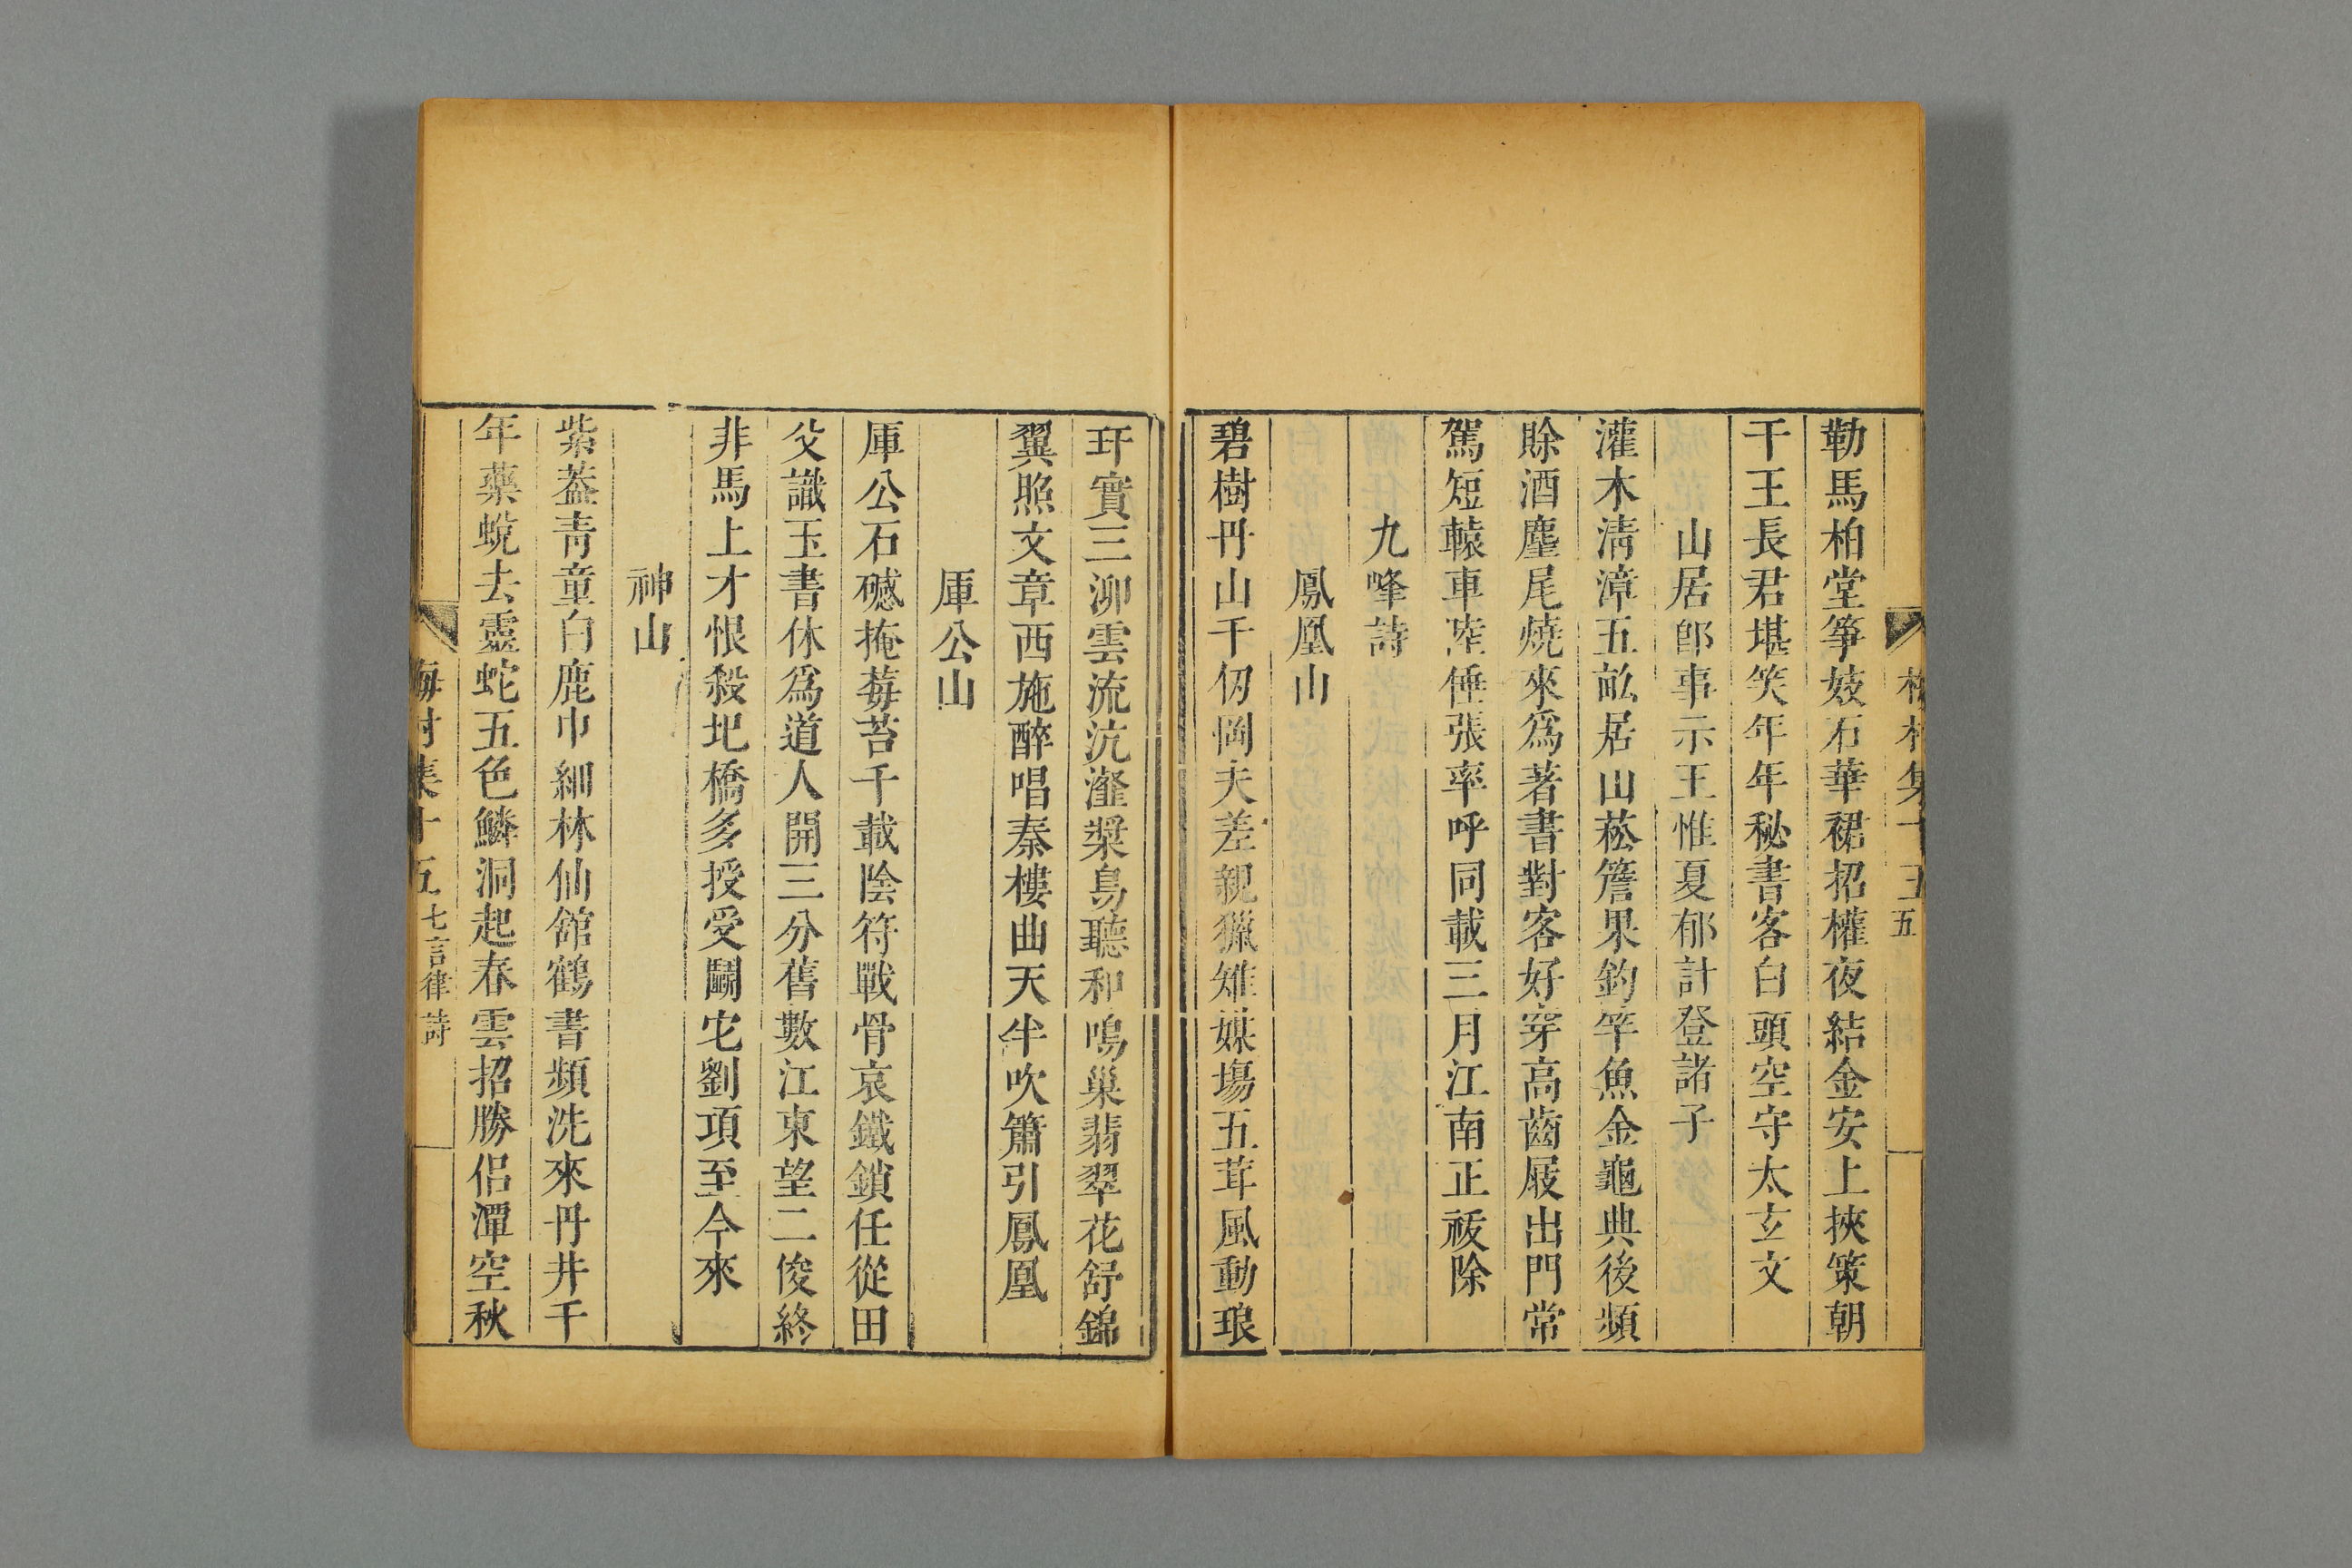 梅村集十五
五
勒馬柏堂箏妓石華裙招權夜結金安上挾策朝
干王長君堪笑年年秘書客白頭空守太玄文
山居即事示王惟夏郁計登諸子
灌木清漳五畝居山菘簷果釣竿魚金龜典後頻
賒酒麈尾燒來爲著書對客好穿高齒屐出門常
駕短轅車陸倕張率呼同載三月江南正祓除
九峰詩
鳳凰山
碧樹丹山千仞岡夫差親獵雉媒場五茸風動琅
玕實三泖雲流沆瀣漿鳥聽和鳴巢翡翠花舒錦
翼照文章西施醉唱秦樓曲天半吹簫引鳳凰
厙公山
厙公石礈掩莓苔千載陰符戰骨哀鐵鎖任從田
父識玉書休爲道人開三分舊數江東望二俊終
非馬上才恨殺圯橋多授受鬬它劉項至今來
神山
紫蓋青童白鹿巾細林仙館鶴書頻洗來丹井千
年藥蛻去靈蛇五色鱗洞起春雲招勝侶潭空秋
梅村集十五 七言律詩